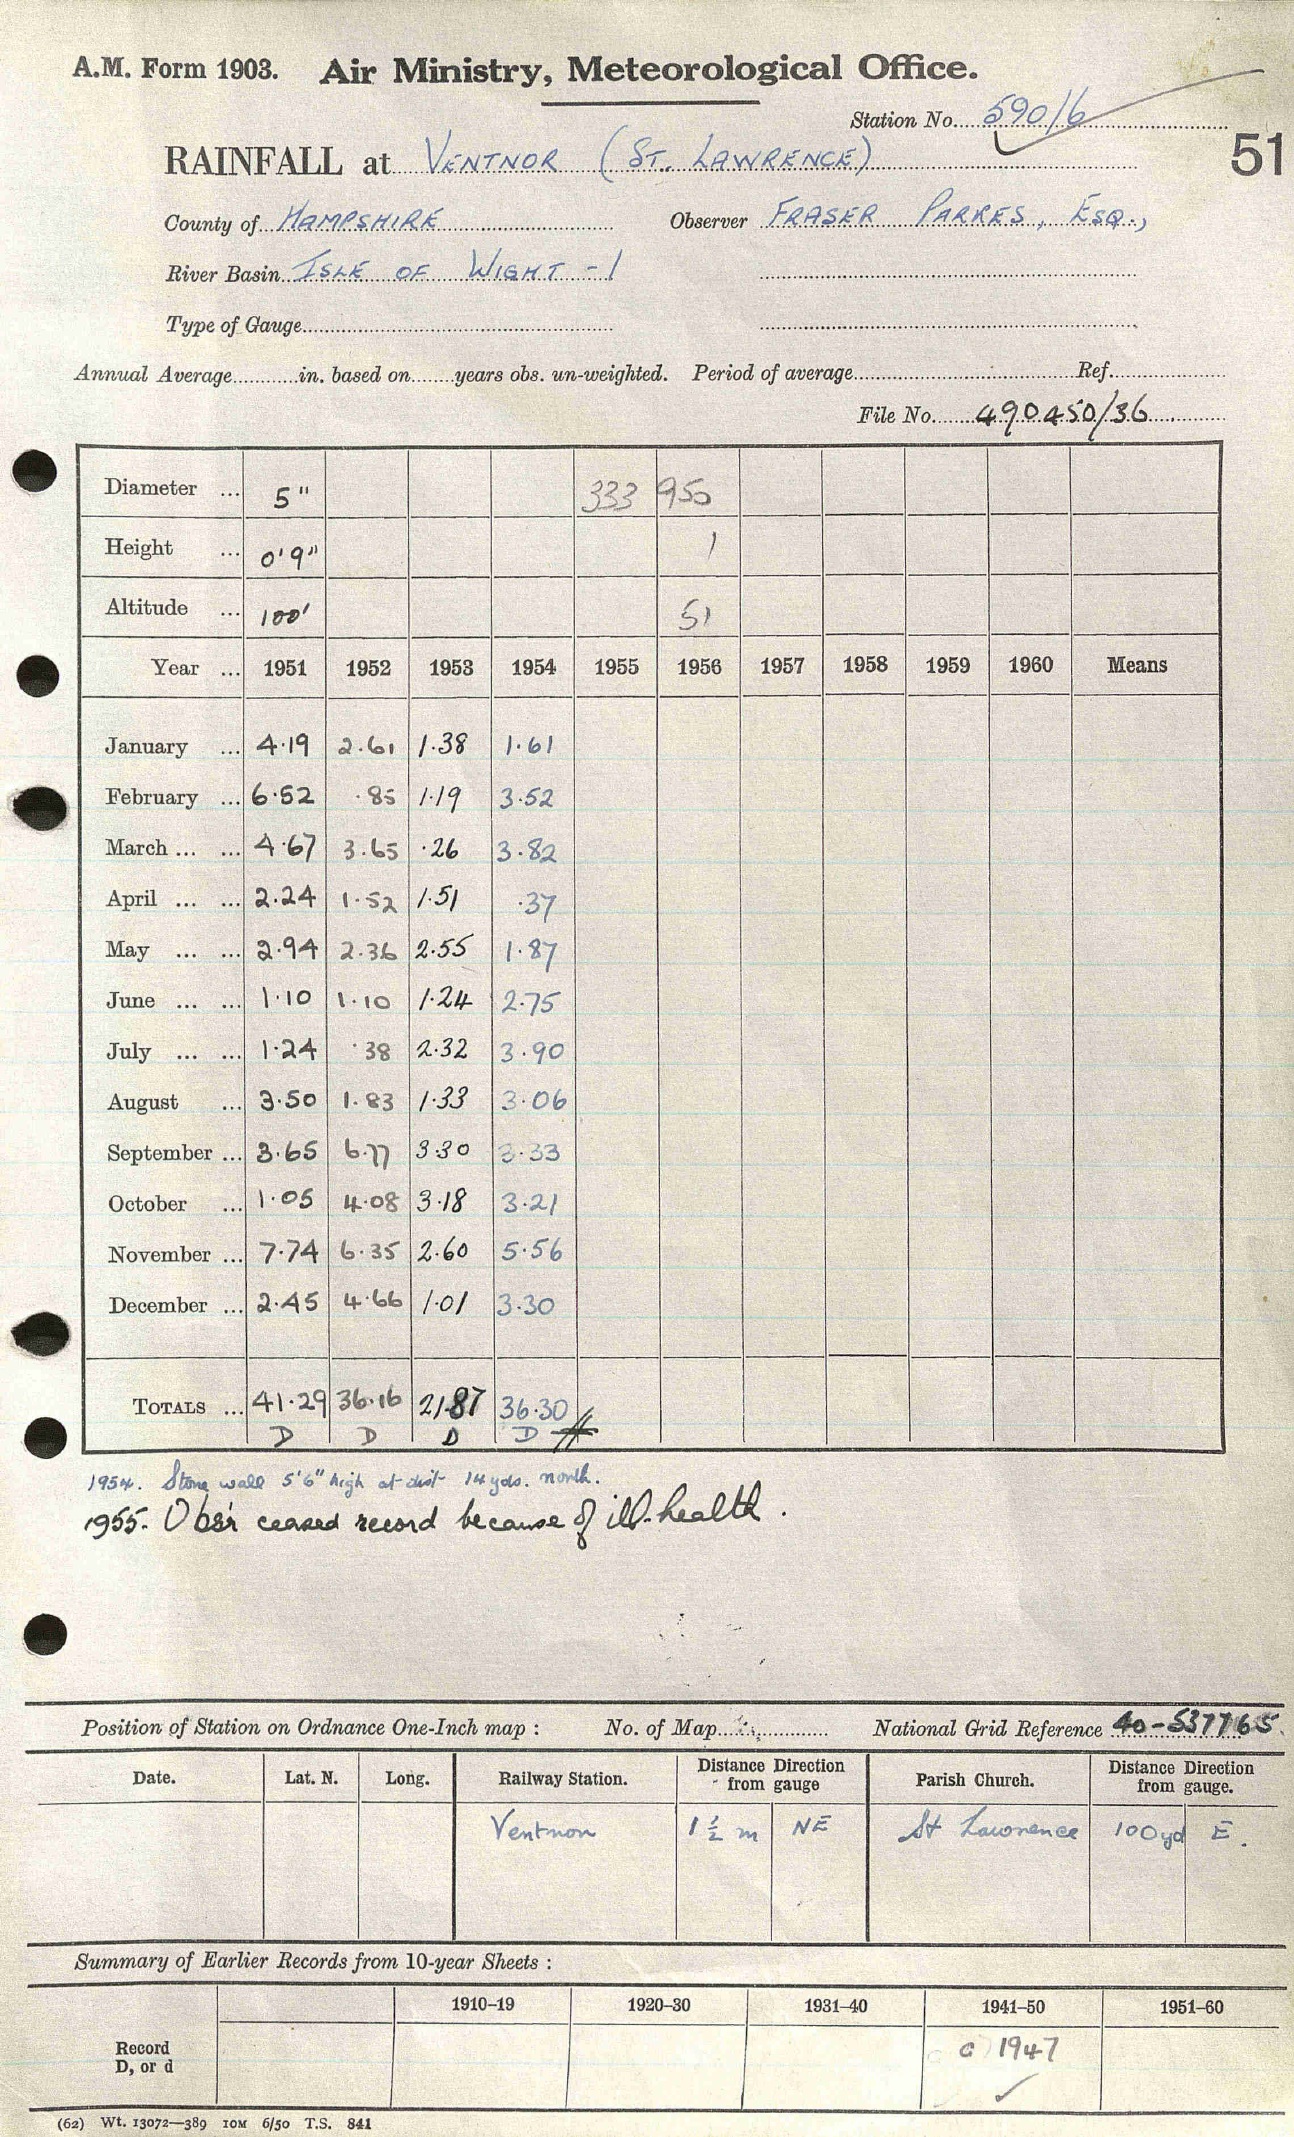 A.M. Form 1903. Air Ministry, Meteorological Office.
Station No. 590/6
51
RAINFALL at VENTNOR (ST. LAWRENCE)
County of HAMPSHIRE Observer FRASER PARKES, ESQ.,
River Basin ISLE OF WIGHT - 1
Type of Gauge
Annual Average in. based on years obs. un-weighted. Period of average Ref.
File No. 490450/36
Diameter ... 5" 333 950
Height ... 0'9" 1
Altitude ... 100' 51
Year ... 1951 1952 1953 1954 1955 1956 1957 1958 1959 1960 Means
January ... 4.19 2.61 1.38 1.61
February ... 6.52 .85 1.19 3.52
March ... ... 4.67 3.65 .26 3.82
April ... ... 2.24 1.52 1.51 .37
May ... ... 2.94 2.36 2.55 1.87
June ... ... 1.10 1.10 1.24 2.75
July ... ... 1.24 .38 2.32 3.90
August ... 3.50 1.83 1.33 3.06
September ... 3.65 6.77 3.30 3.33
October ... 1.05 4.08 3.18 3.21
November ... 7.74 6.35 2.60 5.56
December ... 2.45 4.66 1.01 3.30
TOTALS ... 41.29 36.16 21.87 36.30
D D D D
1954. Stone wall 5'6" high at dist 14 yds. north.
1955. Obs'r ceased record because of ill-health.
Position of Station on Ordnance One-Inch map : No. of Map National Grid Reference 40-537765
Date. Lat. N. Long. Railway Station. Distance Direction from gauge Parish Church. Distance Direction from gauge.
Ventnor 1½ m NE St Lawrence 100yd E.
Summary of Earlier Records from 10-year Sheets :
1910-19 1920-30 1931-40 1941-50 1951-60
Record D, or d
c 1947
(62) Wt. 13072—389 10M 6/50 T.S. 841